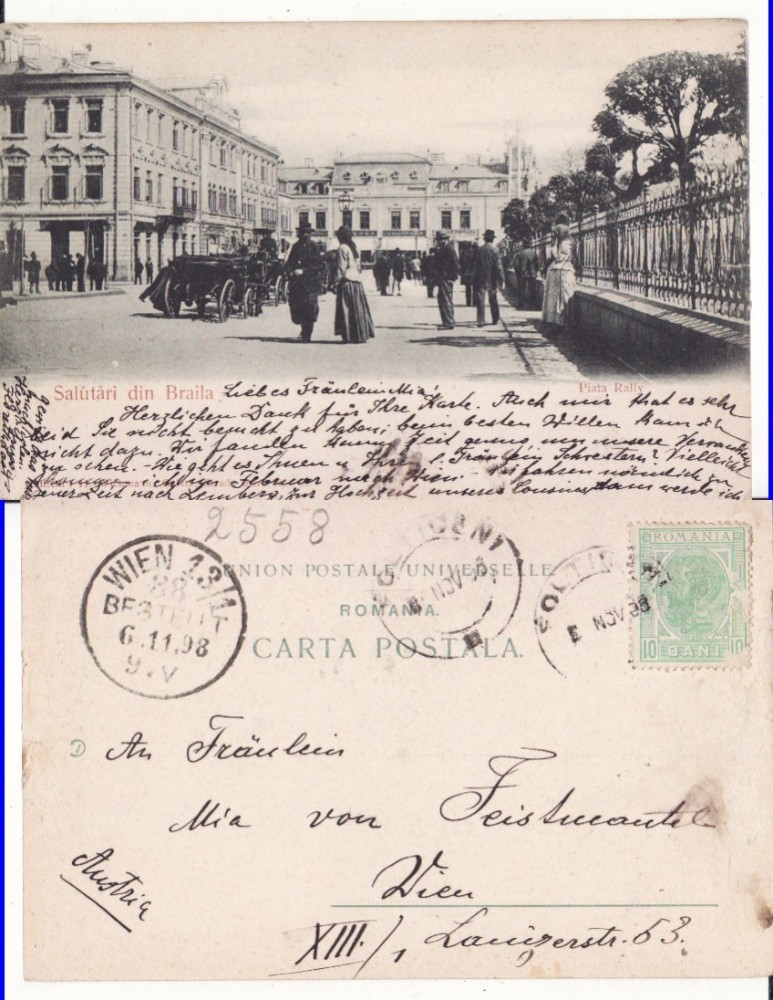 Salutări din Braila
Piata Rally
Liebes Fräulein Mia!
Herzlichen Dank für Ihre Karte. Auch mir that es sehr
leid Sie nicht besucht zu haben; beim besten Willen kam ich
nicht dazu. Wir fanden kaum Zeit genug, um unsere Verwandten
zu sehen. - Wie geht es Ihnen u. Ihren l. Fräulein Schwestern? Vielleicht
ich im Februar nach Wien. Wir fahren nämlich zu
jener Zeit nach Lemberg, zur Hochzeit unseres Cousins, dann werde ich
2558
UNION POSTALE UNIVERSELLE
ROMANIA.
CARTA POSTALA.
WIEN 13/1
88
BESTELLT
6.11.98
9.V
NOV 98
NOV 98
ROMANIA
10 BANI 10
D
An Fräulein
Mia von Feistmantel
Wien
XIII./1 Lainzerstr. 53.
Austria